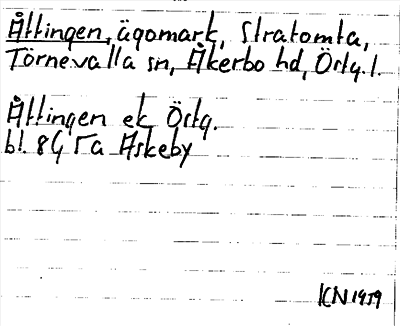 Åttingen, ägomark, Stratomta,
Törnevalla sn, Åkerbo hd, Östg. l.
Åttingen ek Östg.
bl. 8G Γa Askeby
KN 1959